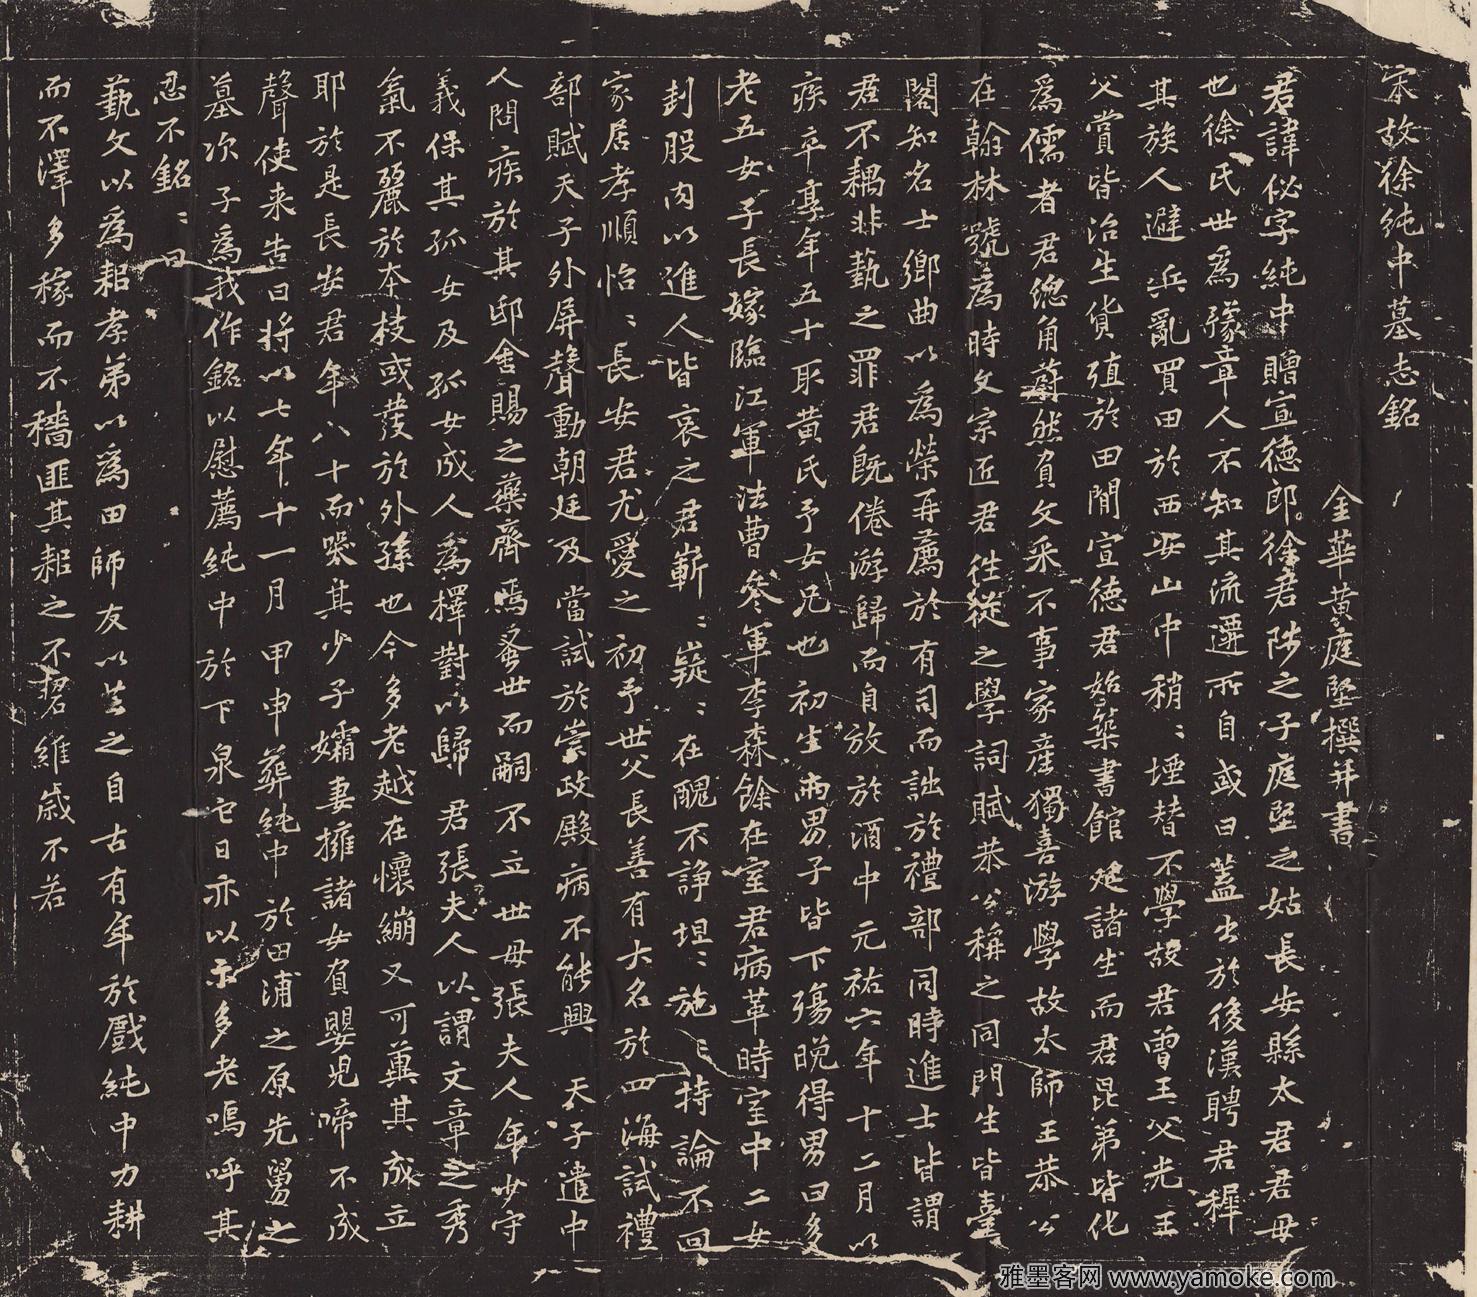 宋故徐純中墓志銘
金華黃庭堅撰并書
君諱佖字純中贈宣德郎徐君陟之子庭堅之姑長安縣太君君母
也徐氏世為豫章人不知其流遷所自或曰蓋出於後漢聘君穉
其族人避兵亂買田於西安山中稍〻堙替不學故君曾王父光王
父賞皆治生貨殖於田間宣德君始築書館延諸生而君昆弟皆化
為儒者君總角蔚然負文采不事家產獨喜游學故太師王恭公
在翰林號為時文宗匠君往從之學詞賦恭公稱之同門生皆臺
閣知名士鄉曲以為榮再薦於有司而詘於禮部同時進士皆謂
君不耦非藝之罪君既倦游歸而自放於酒中元祐六年十二月以
疾卒享年五十取黃氏予女兄也初生兩男子皆下殤晚得男曰多
老五女子長嫁臨江軍法曹參軍李森餘在室君病革時室中二女
刲股肉以進人皆哀之君嶄〻嶷〻在醜不諍坦〻施〻持論不回
家居孝順怡〻長安君尤愛之初予世父長善有大名於四海試禮
部賦天子外屏聲動朝廷及當試於崇政殿病不能興 天子遣中
人問疾於其邸舍賜之藥齊焉蚤世而嗣不立世母張夫人年少守
義保其孤女及孤女成人為擇對以歸 君張夫人以謂文章之秀
氣不麗於本枝或發於外孫也今多老越在懷繃又可冀其成立
耶於是長安君年八十而哭其少子孀妻擁諸女負嬰兒啼不成
聲使來告曰將以七年十一月 甲申葬純中 於田浦之原先舅之
墓次子為我作銘以慰薦純中 於下泉它日亦以示多老嗚呼其
忍不銘〻曰
藝文以為耜孝弟以為田師友以芸之自古有年於戲純中力耕
而不澤多稼而不穡匪其耜之不䂮維歲不若
雅墨客网 www.yamoke.com